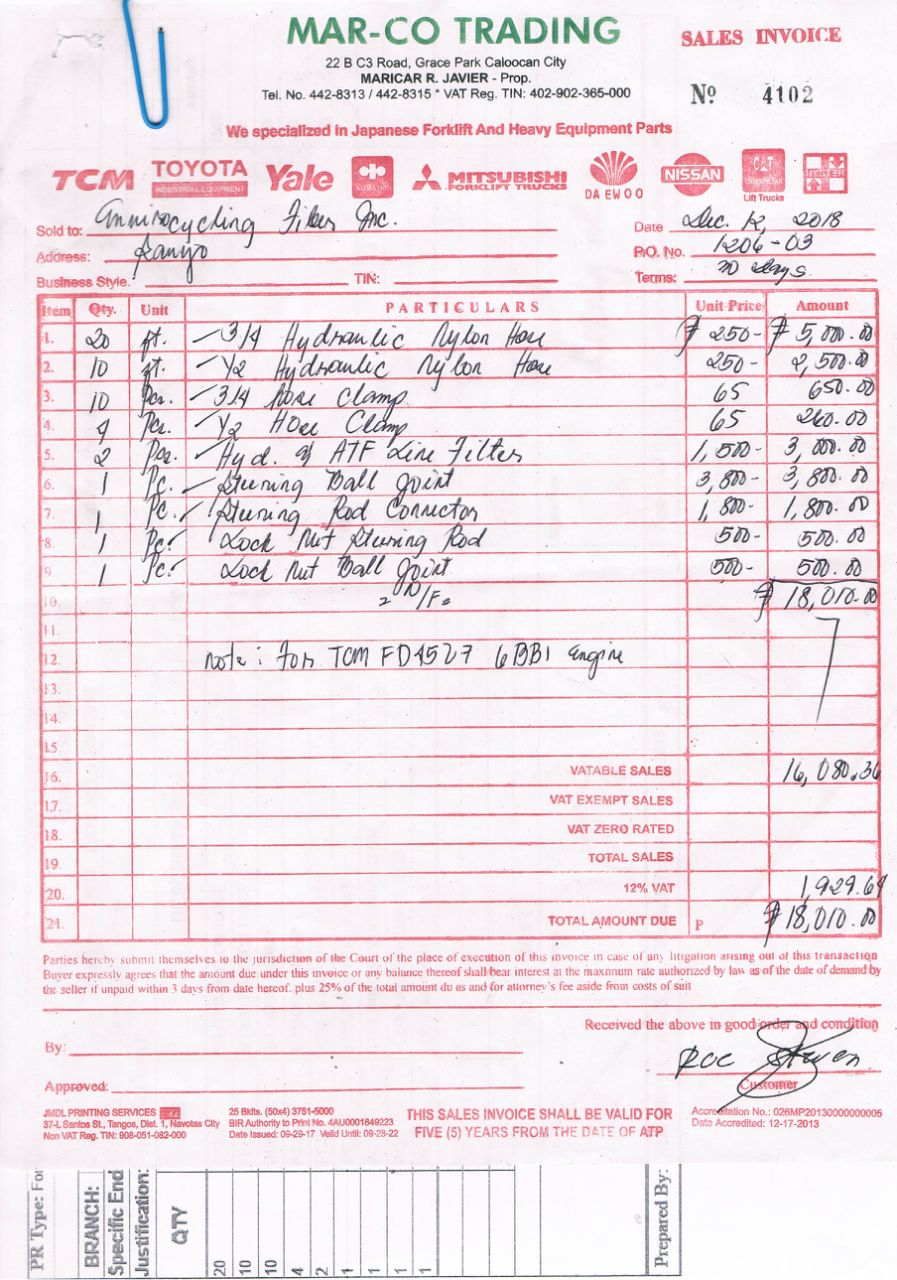 MAR-CO TRADING
SALES INVOICE
22 B C3 Road, Grace Park Caloocan City
MARICAR R. JAVIER - Prop.
Tel. No. 442-8313 / 442-8315 * VAT Reg. TIN: 402-902-365-000
Nº 4102
We specialized in Japanese Forklift And Heavy Equipment Parts
TCM TOYOTA INDUSTRIAL EQUIPMENT Yale KOMATSU MITSUBISHI FORKLIFT TRUCKS DAEWOO NISSAN CAT CATERPILLAR Lift Trucks HYSTER
Sold to: Fiber Inc. Date Dec. 12, 2018
Address: P.O. No. 1206-03
Business Style. TIN: Terms: 30 days
Item Qty. Unit PARTICULARS Unit Price Amount
1. 20 ft. 3/4 Hydraulic Nylon Hose ₱ 250- ₱ 5,000.00
2. 10 ft. 1/2 Hydraulic Nylon Hose 250- 2,500.00
3. 10 Pcs. 3/4 Hose Clamp 65 650.00
4. 4 Pcs. 1/2 Hose Clamp 65 260.00
5. 2 Pcs. Hyd. of ATF Line Filter 1,500- 3,000.00
6. 1 Pc. Steering Ball Joint 3,800- 3,800.00
7. 1 Pc. Steering Rod Connector 1,800- 1,800.00
8. 1 Pc. Lock Nut Steering Rod 500- 500.00
9. 1 Pc. Lock Nut Ball Joint 500- 500.00
10. = N/F = ₱ 18,010.00
11.
12. note: For TCM FD45Z7 6BB1 Engine
13.
14.
15.
16. VATABLE SALES 16,080.36
17. VAT EXEMPT SALES
18. VAT ZERO RATED
19. TOTAL SALES
20. 12% VAT 1,929.64
21. TOTAL AMOUNT DUE P ₱ 18,010.00
Parties hereby submit themselves to the jurisdiction of the Court of the place of execution of this invoice in case of any litigation arising out of this transaction
Buyer expressly agrees that the amount due under this invoice or any balance thereof shall bear interest at the maximum rate authorized by law as of the date of demand by
the seller if unpaid within 3 days from date hereof. plus 25% of the total amount du as and for attorney's fee aside from costs of suit
Received the above in good order and condition
By:
Customer
Approved:
JMDL PRINTING SERVICES
37-L Santos St., Tangos, Dist. 1, Navotas City
Non VAT Reg. TIN: 908-051-082-000
25 Bklts. (50x4) 3751-5000
BIR Authority to Print No. 4AU0001849223
Date Issued: 09-29-17 Valid Until: 09-28-22
THIS SALES INVOICE SHALL BE VALID FOR
FIVE (5) YEARS FROM THE DATE OF ATP
Accreditation No.: 026MP20130000000005
Date Accredited: 12-17-2013
PR Type: For
BRANCH:
Specific End
Justification:
QTY
20
10
10
4
2
1
1
1
1
Prepared By: